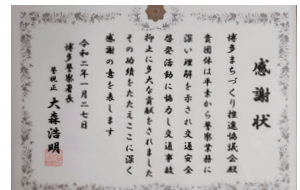 感謝状
博多まちづくり推進協議会殿
貴団体は平素から警察業務に
深い理解を示され交通安全
啓発活動に協力し交通事故
抑止に多大な貢献をされました
その功績をたたえここに深く
感謝の意を表します
令和二年一月二七日
博多警察署長
警視正 大森浩明